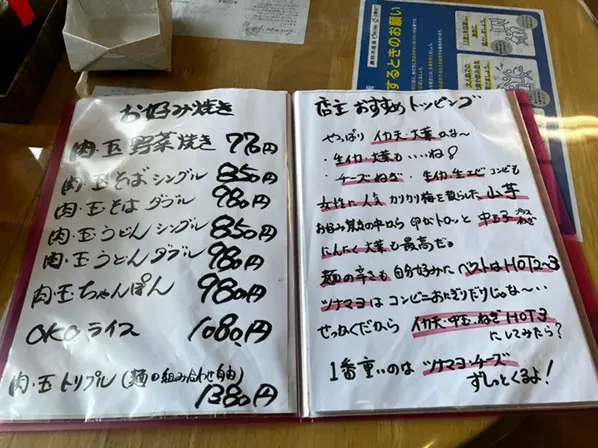 するときのお願い
お好み焼き
肉・玉 野菜焼き 770円
肉・玉そば シングル 850円
肉・玉そば ダブル 980円
肉・玉うどん シングル 850円
肉・玉うどん ダブル 980円
肉・玉ちゃんぽん 980円
OKOライス 1080円
肉・玉トリプル (麺の組み合わせ自由)
1380円
店主おすすめトッピング
やっぱり イカ天・大葉かな〜
・生イカ・大葉も いいね!
・チーズねぎ・生イカ・生エビ コンビも
女性に人気 カリカリ梅を散らした 山芋
お好み焼きの中から 卵がトロッと 中玉子 プラスねぎ
にんたく大葉も最高だ。
麺の辛さも 自分好みに ベストはHOT2〜3
ツナマヨは コンビニおにぎりだけじゃな〜い
せつなくだから イカ天・中玉・ねぎ HOT3
にしてみたら?
1番重いのは ツナマヨ・チーズ
ずしっとくるよ!